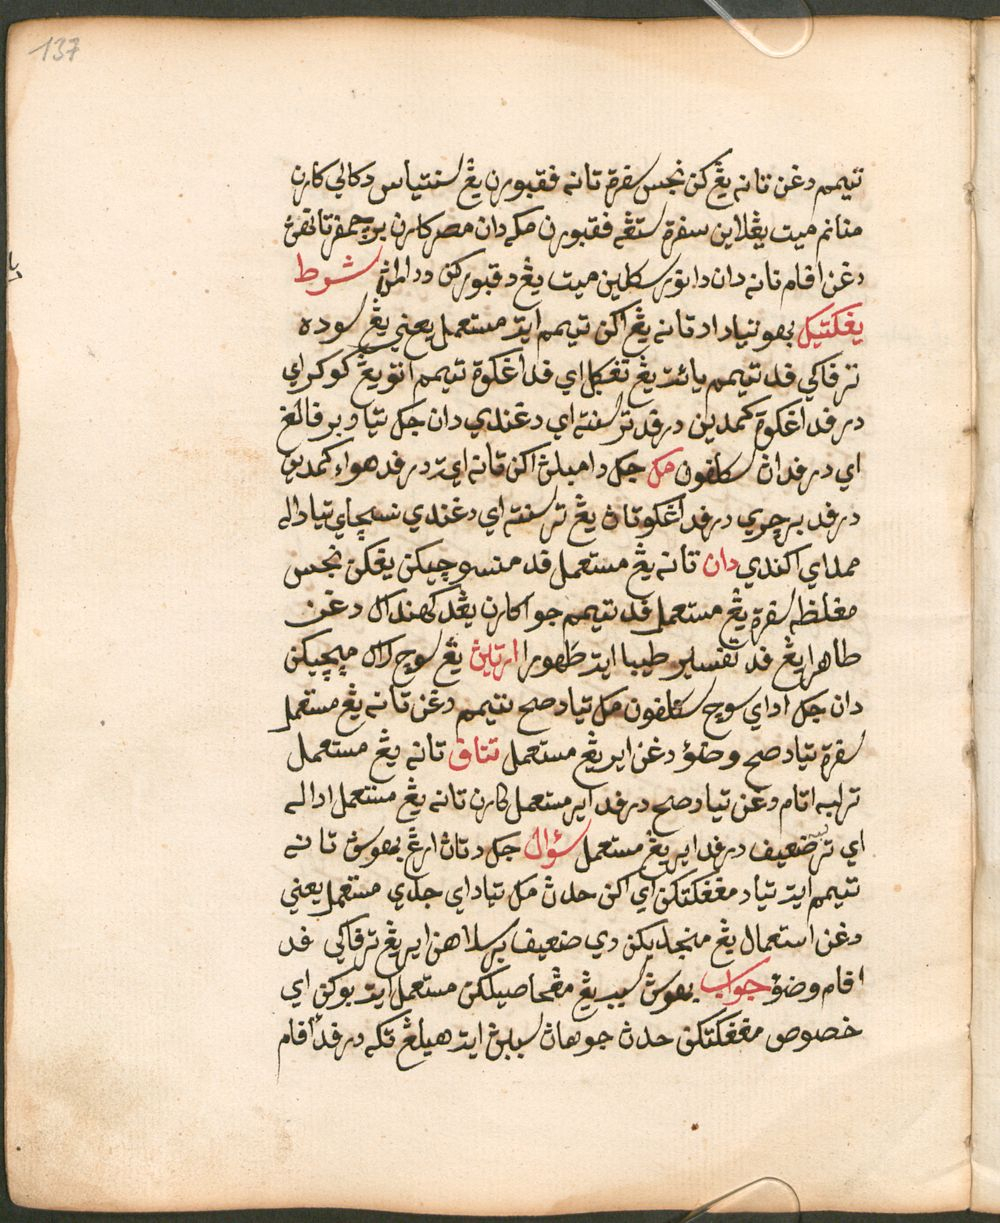 137
تيمم دڠن تانه يڠ كن نجس سفرة تانه فقبورن يڠ سنتياس دكالي كارن
منانم ميت يڠلاين سفرة ستڠه فقبورن مكه دان مصر كارن برچمفر تانهڽ
دڠن افام تانه دان داتو سكلين ميت يڠ دقبوركن ددالمڽ شرط
يڠكتيݢ بهوتياد اد تانه يڠ اكن تيمم ايت مستعمل يعني يڠ سوده
ترفاكي فد تيمم يائت يڠ تڠݢل اي فد اڠݢوة تيمم اتو يڠ ݢوݢر اي
درفد اڠݢوة كمدين درفد ترسنته اي دڠندي دان جك تياد برفالڠ
اي درفدان سكلفون مك جك دامبلڽ اكن تانه ايت درفد هواء كمدين
درفد برچري درفد اڠݢوتاڽ يڠ ترسنته اي دڠندي نسچاي تيادله
ممداي اكندي دان تانه يڠ مستعمل فد منسوچيكن يڠكن نجس
مغلظه سفرة يڠ مستعمل فد تيمم جوا كارن يڠد كهندق دڠن
طاهرا يڠ فد تفسير طيبا ايت طهورا ارتين يڠ سوچ لاݢ مپوچيكن
دان جك اداي سوچ سكلفون مك تياد صح تيمم دڠن تانه يڠ مستعمل
سفرة تياد صح وضؤ دڠن اير يڠ مستعمل تتاف تانه يڠ مستعمل
ترلبه اتام دڠن تياد صح درفد اير مستعمل كارن تانه يڠ مستعمل اداله
اي ترضعيف درفد اير يڠ مستعمل سؤال جك دتاڽ اورڠ بهوسڽ تانه
تيمم ايت تياد مڠڠكتكن اي اكن حدث مك تياد اي جادي مستعمل يعني
دڠن استعمال يڠ منجديكن دي ضعيف برسلاهن اير يڠ ترفاكي فد
افام وضؤ جواب بهوسڽ سبب يڠ مڠحاصيلكن مستعمل ايت بوكن اي
خصوص مڠڠكتكن حدث جوهاڽ سببڽ ايت هيلڠ تݢه درفد افام